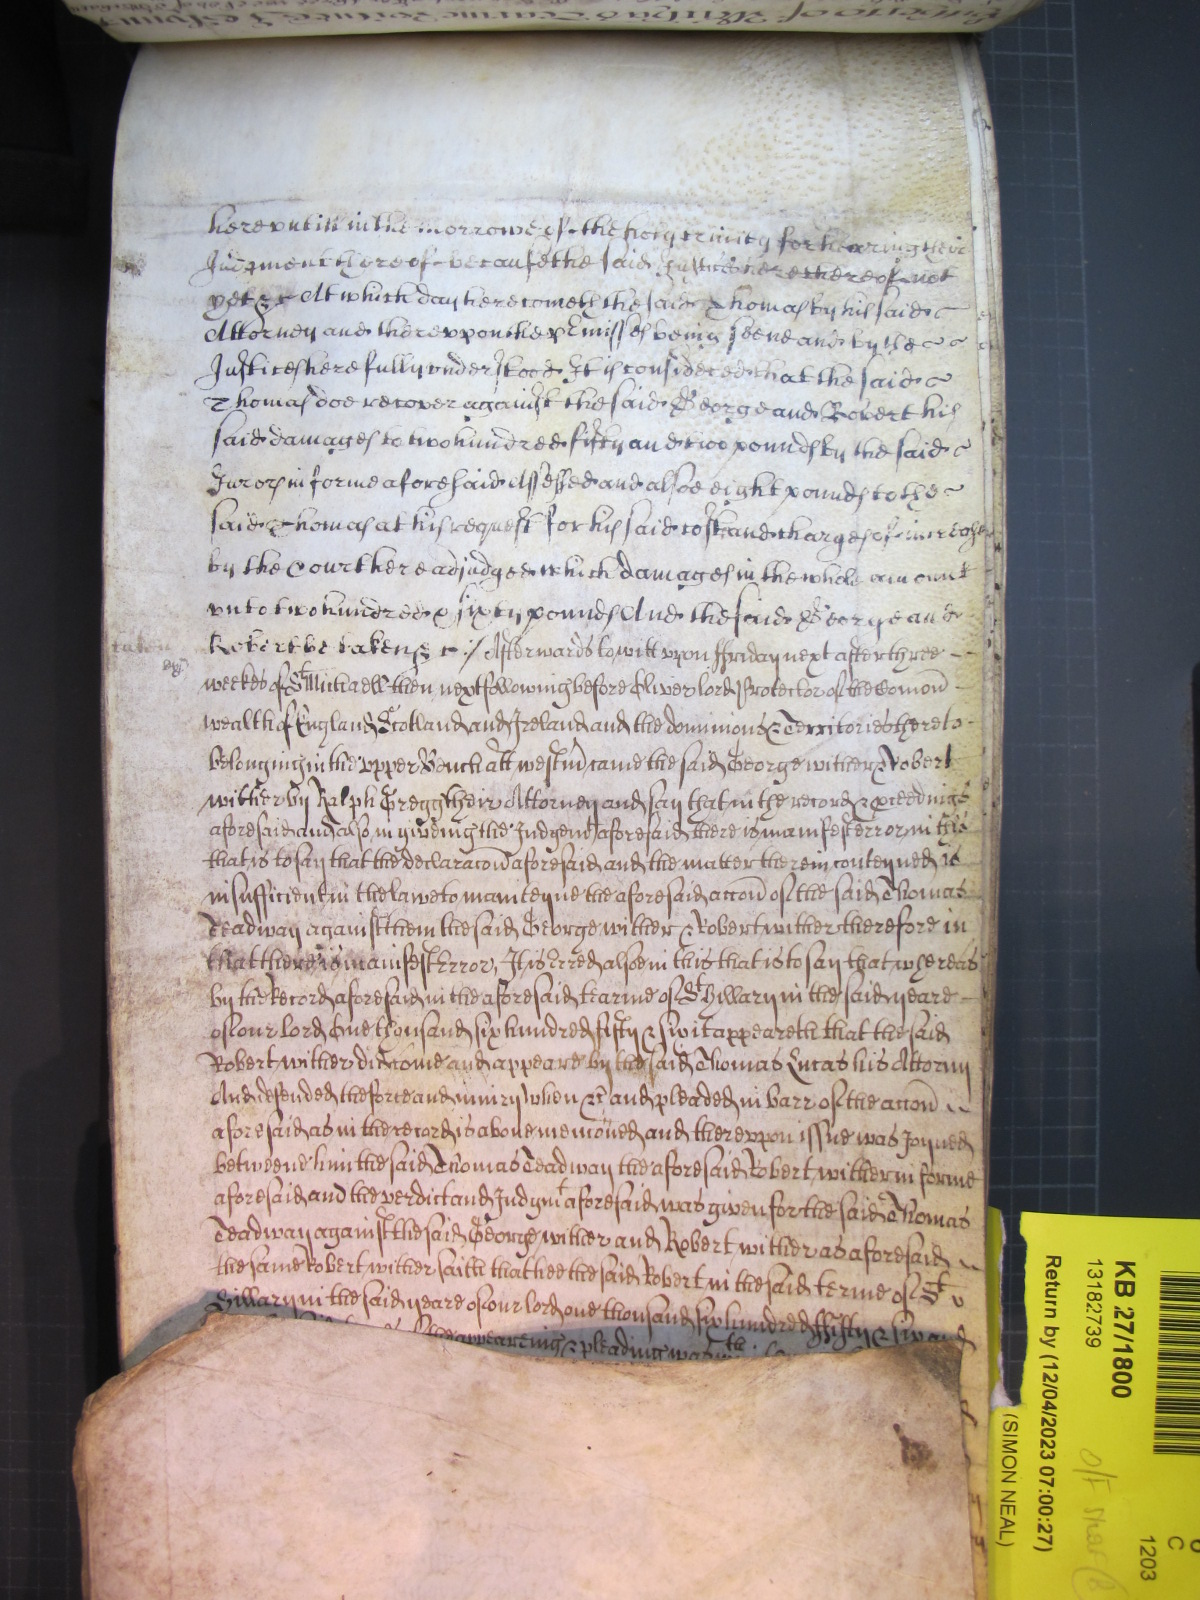 here untill in the morrowe of the holy trinity for hearing their
Judgment thereof because the said Justices here thereof not
yet &c At which day here cometh the said Thomas by his said
Attorney and thereuppon the premisses being seene and by the
Justices here fully understood It is considered that the said
Thomas doe recover against the said George and Robert his
said damages to two hundred fifty and two pounds by the said
Jurors in forme aforesaid Assessed and alsoe eight pounds to the
said Thomas at his request for his said costs and charges of increase
by the Court here adjudged which damages in the whole amount
unto two hundred & sixty pounds And the said George and
Robert be taken &c // Afterwards to witt upon ffriday next after three
weekes of St Michaell then next following before Oliver lord Protector of the Comon
wealth of England Scotland and Ireland and the dominions & Territories thereto
belonging in the upper Bench att Westm came the said George wither & Robert
wither by Ralph Gregg their Attorney and say that in the record & p'ceedings
aforesaid and also in giveing the Judgmt aforesaid there is manifest error in this
that is to say that the declaracon aforesaid and the matter therein conteyned is
insufficient in the lawe to manteyne the aforesaid accon of the said Thomas
Teadway against them the said George wither & Robert wither therefore in
that there is manifest Error, It is Erred alsoe in this that is to say that whereas
by the Record aforesaid in the aforesaid tearme of St Hillary in the said yeare
of our lord One thousand six hundred fifty & six it appeareth that the said
Robert wither did come and appeare by the said Thomas Lucas his Attorny
And defended the force and iniury when &c and pleaded in barr of the accon
aforesaid as in the record is above menconed and thereuppon issue was Joyned
betweene him the said Thomas Teadway the aforesaid Robert wither in forme
aforesaid and the verdict and Judgmt aforesaid was given for the said Thomas
Teadway against the said George wither and Robert wither as aforesaid
the same Robert wither saith that hee the said Robert in the said terme of St
Hillary in the said yeare of our lord one thousand six hundred ffifty & six and
the appeareing & pleading was
KB 27/1800
13182739
Return by (12/04/2023 07:00:27)
(SIMON NEAL)
1203
C